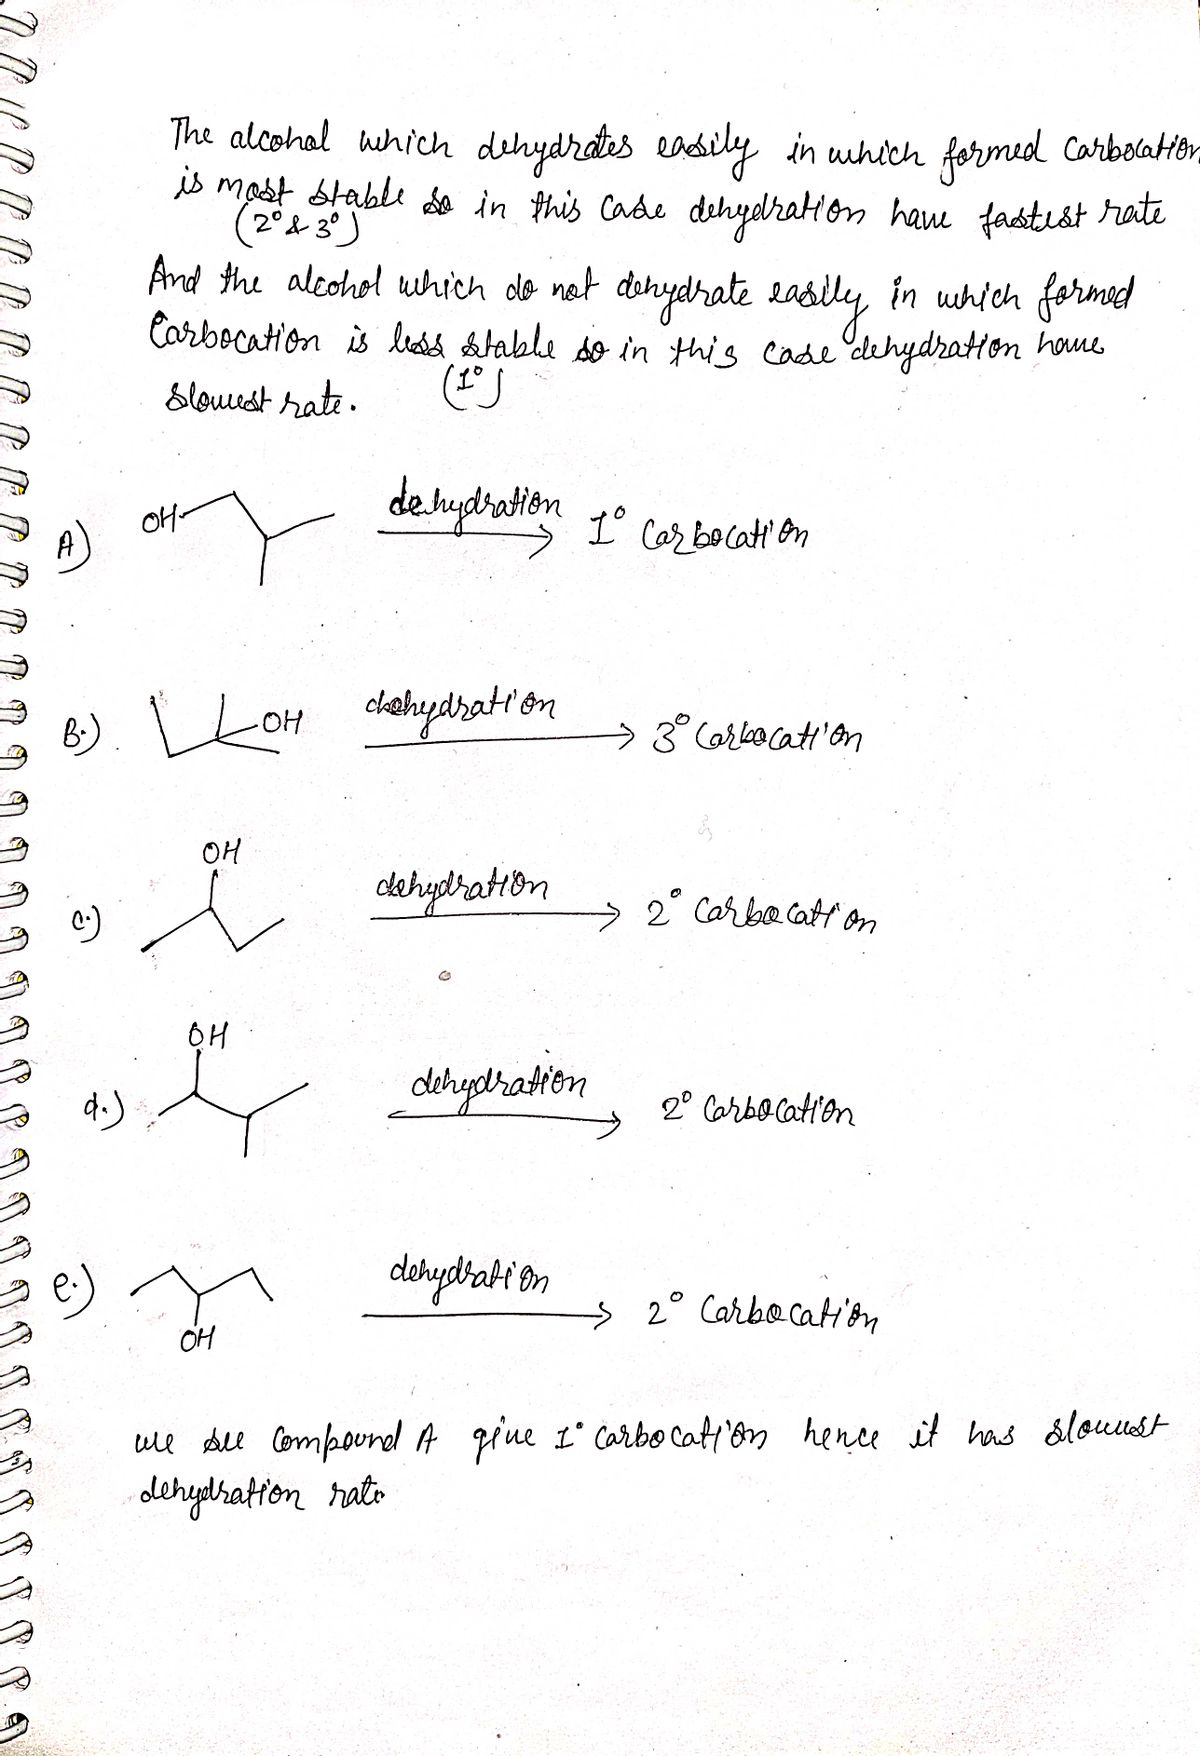 The alcohol which dehydrates easily in which formed Carbocation
is most stable so in this case dehydration have fastest rate
(2° & 3°)
And the alcohol which do not dehydrate easily in which formed
Carbocation is less stable so in this case dehydration have
(1°)
slowest rate.
A) OH dehydration 1° Carbocation
B.) OH dehydration 3° Carbocation
OH
c.) dehydration 2° Carbocation
OH
d.) dehydration 2° Carbocation
e.) dehydration 2° Carbocation
OH
we see Compound A give 1° Carbocation hence it has slowest
dehydration rate